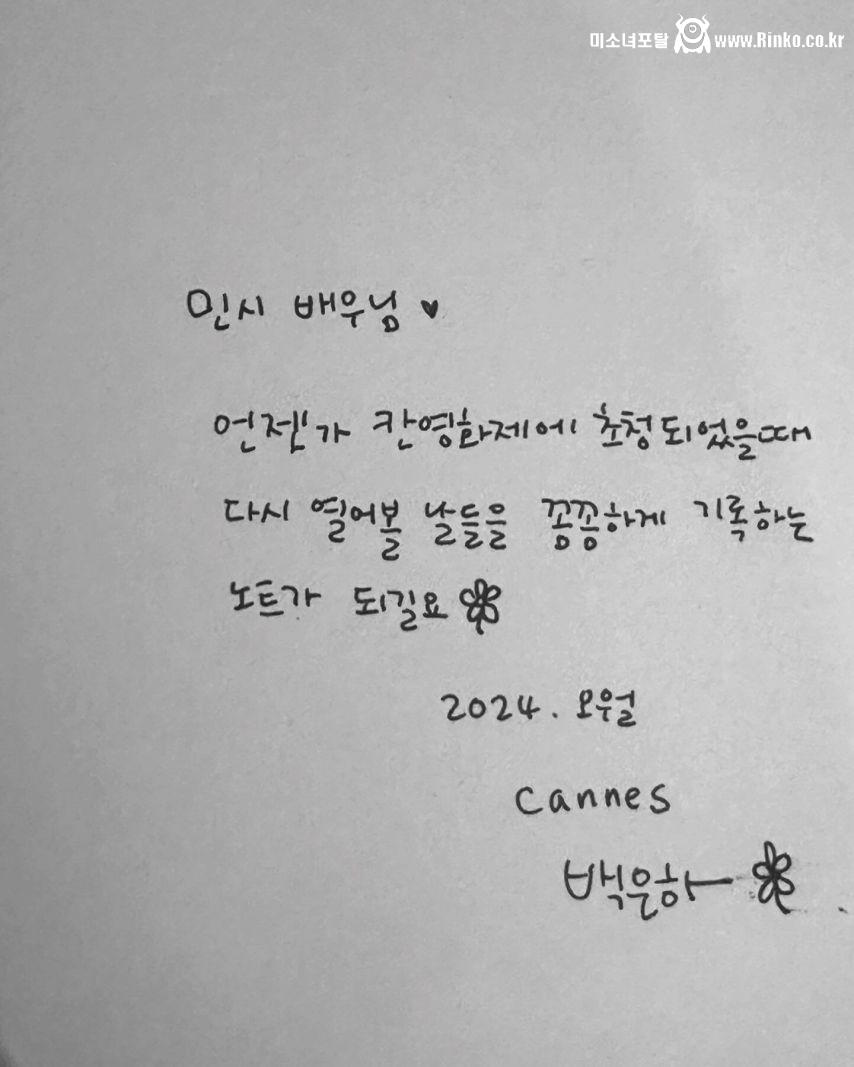 미소녀포탈 www.Rinko.co.kr
민시 배우님 ♥
언젠가 칸영화제에 초청되었을때
다시 열어볼 날들을 꽁꽁하게 기록하는
노트가 되길요
2024. 오월
Cannes
백은하